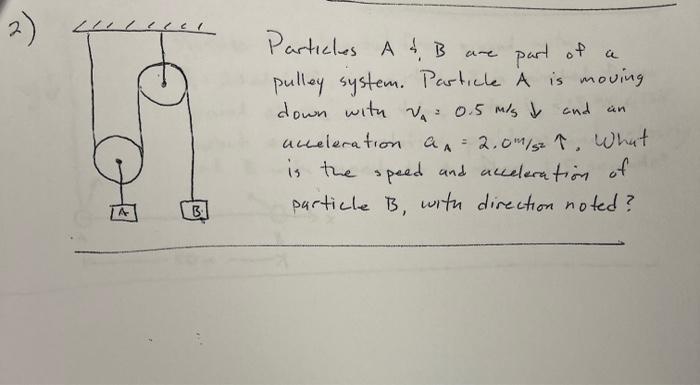 2)
Particles A & B are part of a
pulley system. Particle A is moving
down with v_A = 0.5 m/s ↓ and an
acceleration a_A = 2.0 m/s² ↑. What
is the speed and acceleration of
particle B, with direction noted?
A
B